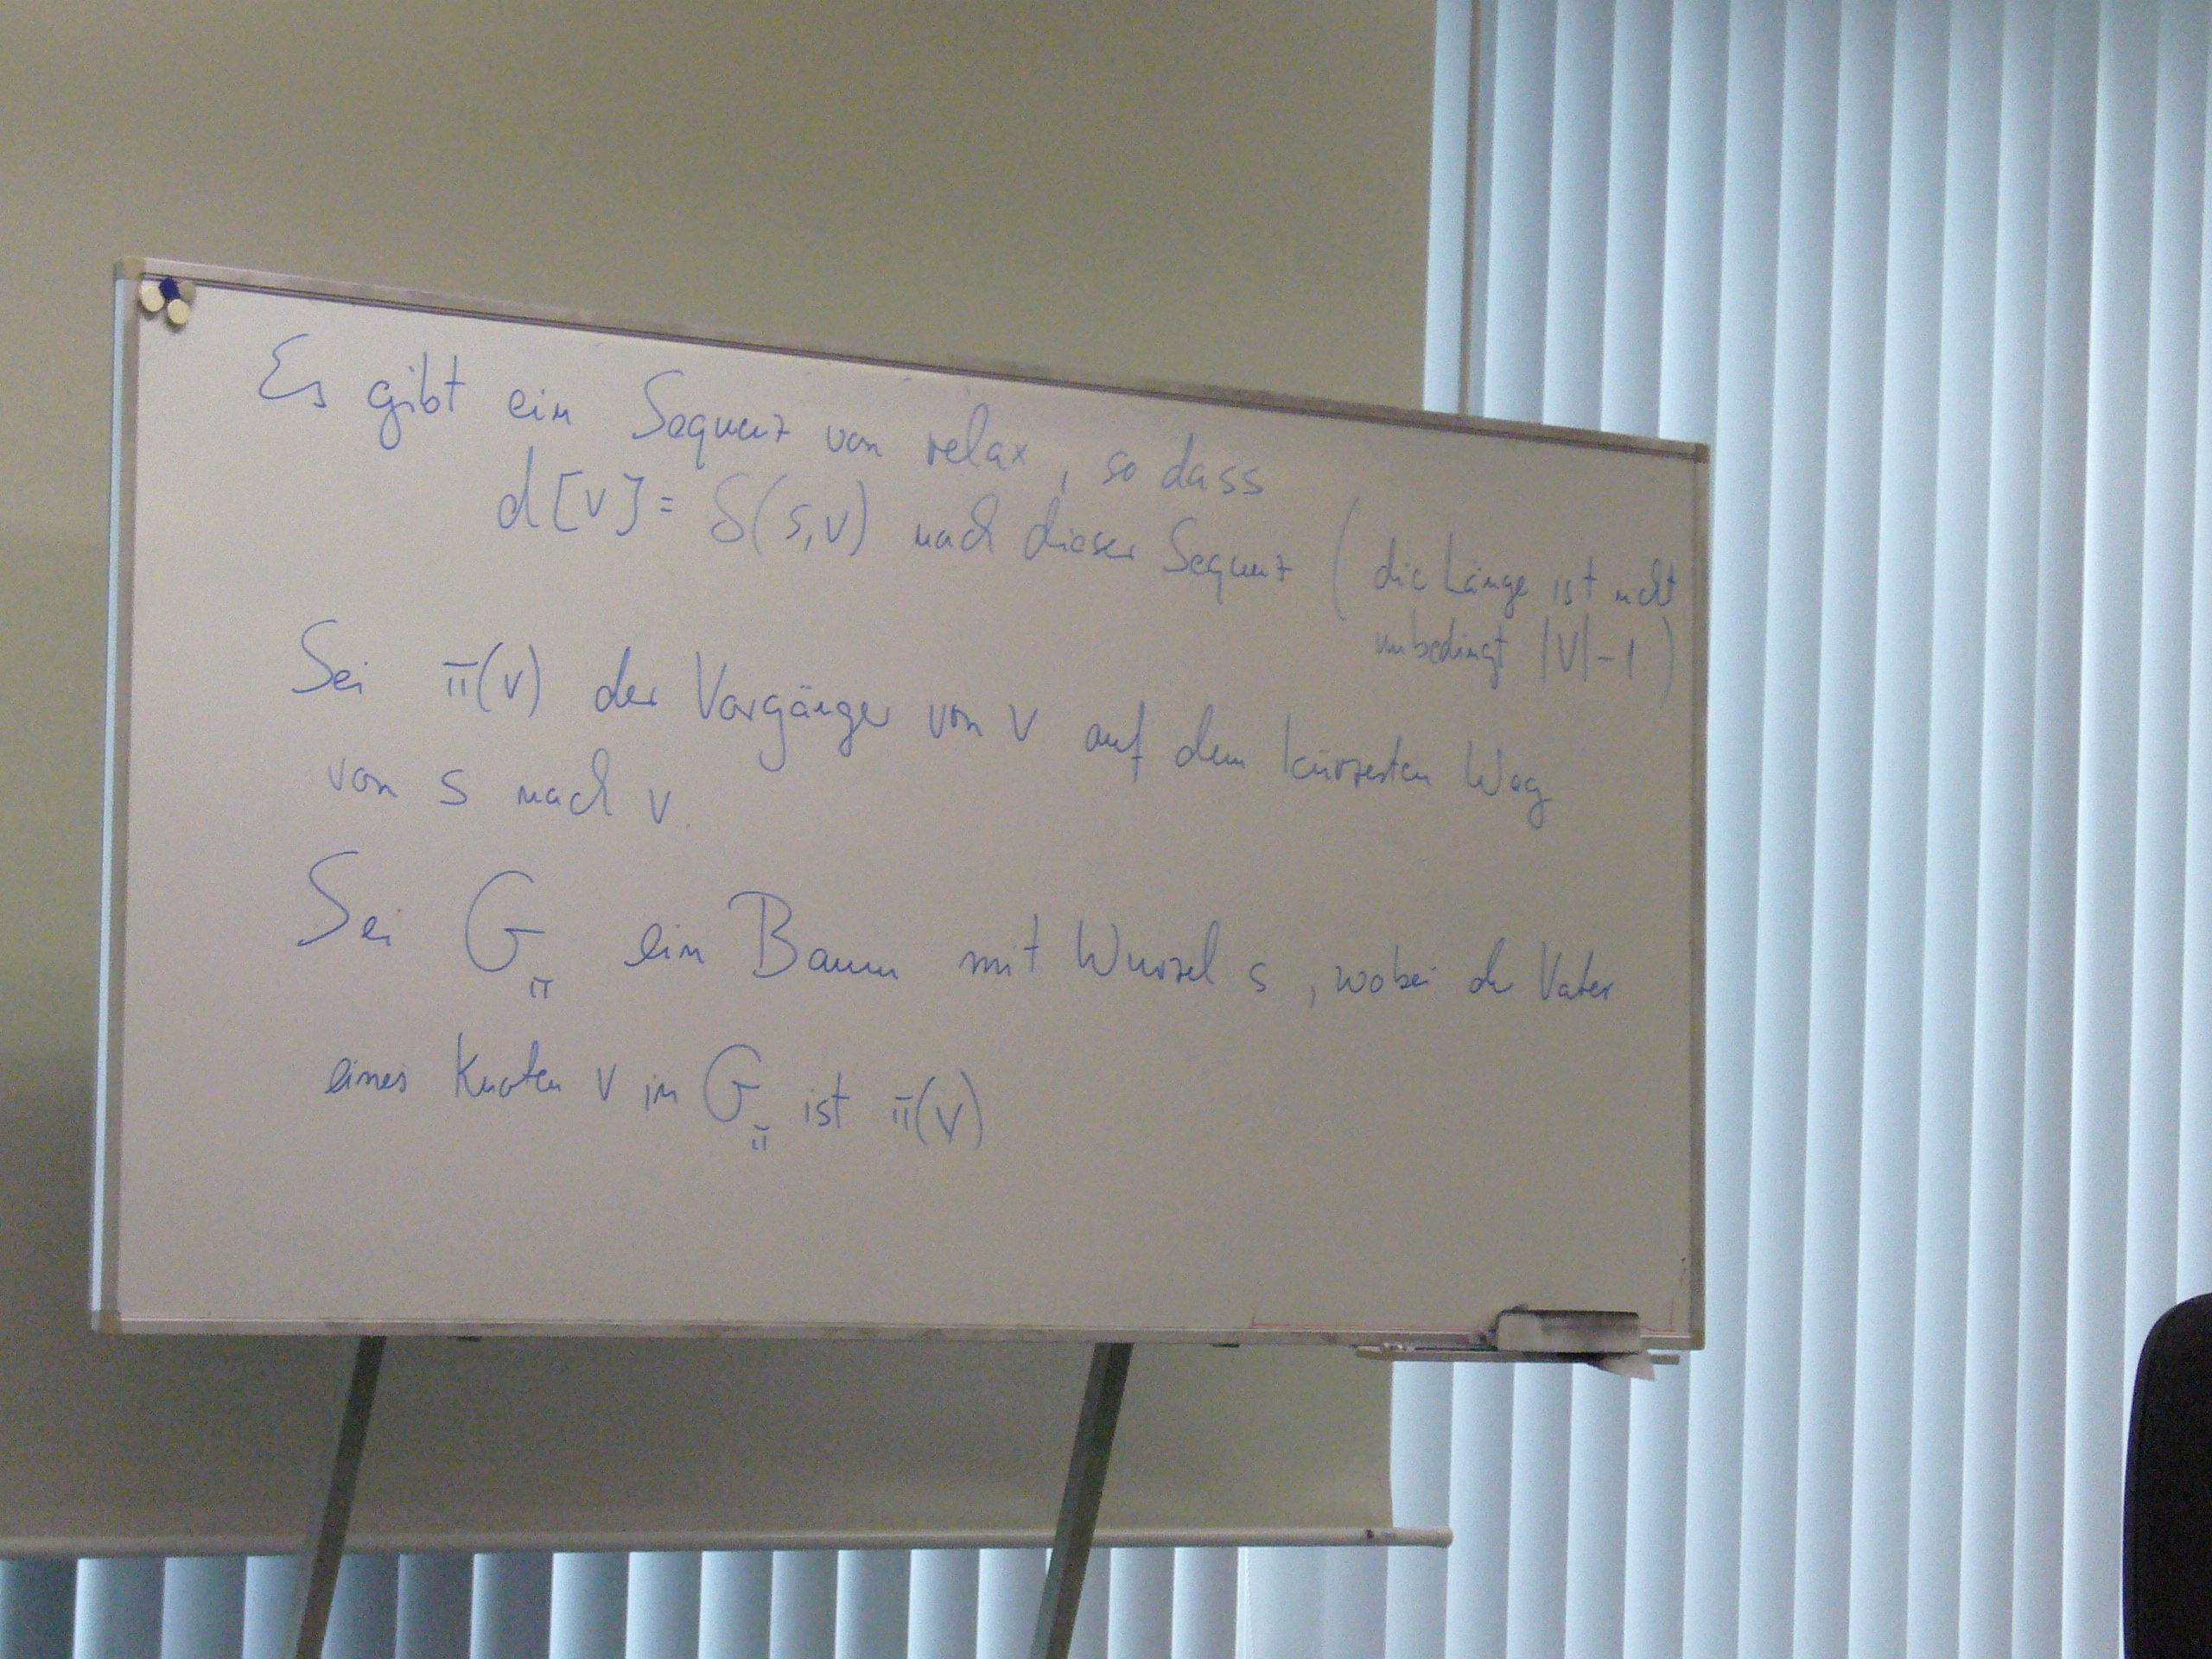 Es gibt ein Sequenz von relax, so dass
d[v] = δ(s,v) nach dieser Sequenz (die Länge ist nicht
unbedingt |V|-1)
Sei π(v) der Vorgänger von v auf dem kürzesten Weg
von s nach v.
Sei G_π ein Baum mit Wurzel s, wobei der Vater
eines Knoten v in G_π ist π(v)